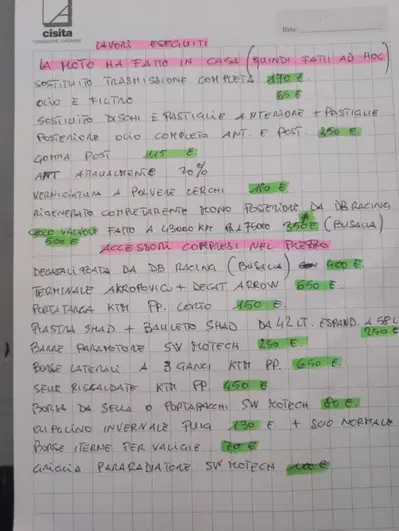 cisita
Data:
LAVORI ESEGUITI
LA MOTO HA FATTO IN CASA (QUINDI FATTI AD HOC)
SOSTITUITO TRASMISSIONE COMPLETA 170 €.
OLIO E FILTRO 65 €
SOSTITUITO DISCHI E PASTIGLIE ANTERIORE + PASTIGLIE
POSTERIORE OLIO COMPLETO ANT. E POST. 350 €.
GOMMA POST 115 €.
ANT ATTUALMENTE 70%
VERNICIATURA A POLVERE CERCHI 150 €
RIGENERATO COMPLETAMENTE MONO POSTERIORE DA DB RACING
GIOCO VALVOLE FATTO A 43000 KM 75000 350 € (BUSALLA)
500 €
ACCESSORI COMPRESI NEL PREZZO
DECATALIZZATA DA DB RACING (BUSALLA) 400 €.
TERMINALE AKROPOVICH + DECAT ARROW 650 €.
PORTATARGA KTM PP. CORTO 150 €.
PIASTRA SHAD + BAULETTO SHAD DA 42 LT. ESPAND. A 58 L
250 €
BARRE PARAMOTORE SW MOTECH 250 €
BORSE LATERALI A 3 GANCI KTM PP. 650 €.
SELLE RISCALDATE KTM PP. 450 €
BORSA DA SELLA O PORTAPACCHI SW MOTECH 80 €.
CUPOLINO INVERNALE PUIG 130 € + SUO NORMALE
BORSE ITERNE PER VALIGIE 70 €
GRIGLIA PARARADIATORE SW MOTECH 100 €